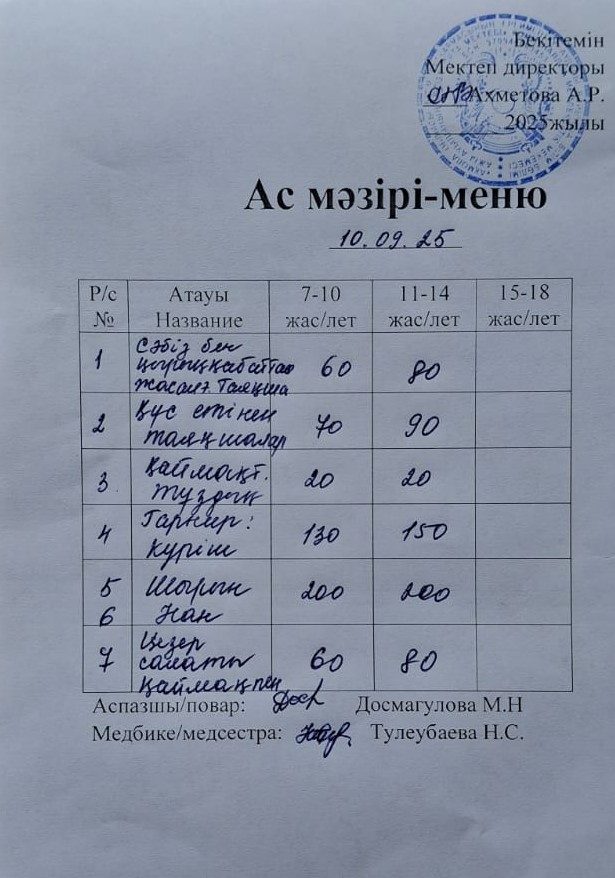 Бекітемін
Мектеп директоры
Ахметова А.Р.
2025жылы
Ас мәзірі-меню
10.09.25
Р/с № Атауы Название 7-10 жас/лет 11-14 жас/лет 15-18 жас/лет
1 Сәбіз бен 60 80
жасалғ таяқша
2 Құс етінен 70 90
таяқшалар
3 Қаймақт. 20 20
тұздық
4 Гарнир: 130 150
күріш
5 Шырын 200 200
6 Нан
7 Цезер 60 80
салаты
қаймақпен
Аспазшы/повар: Досмагулова М.Н
Медбике/медсестра: Тулеубаева Н.С.